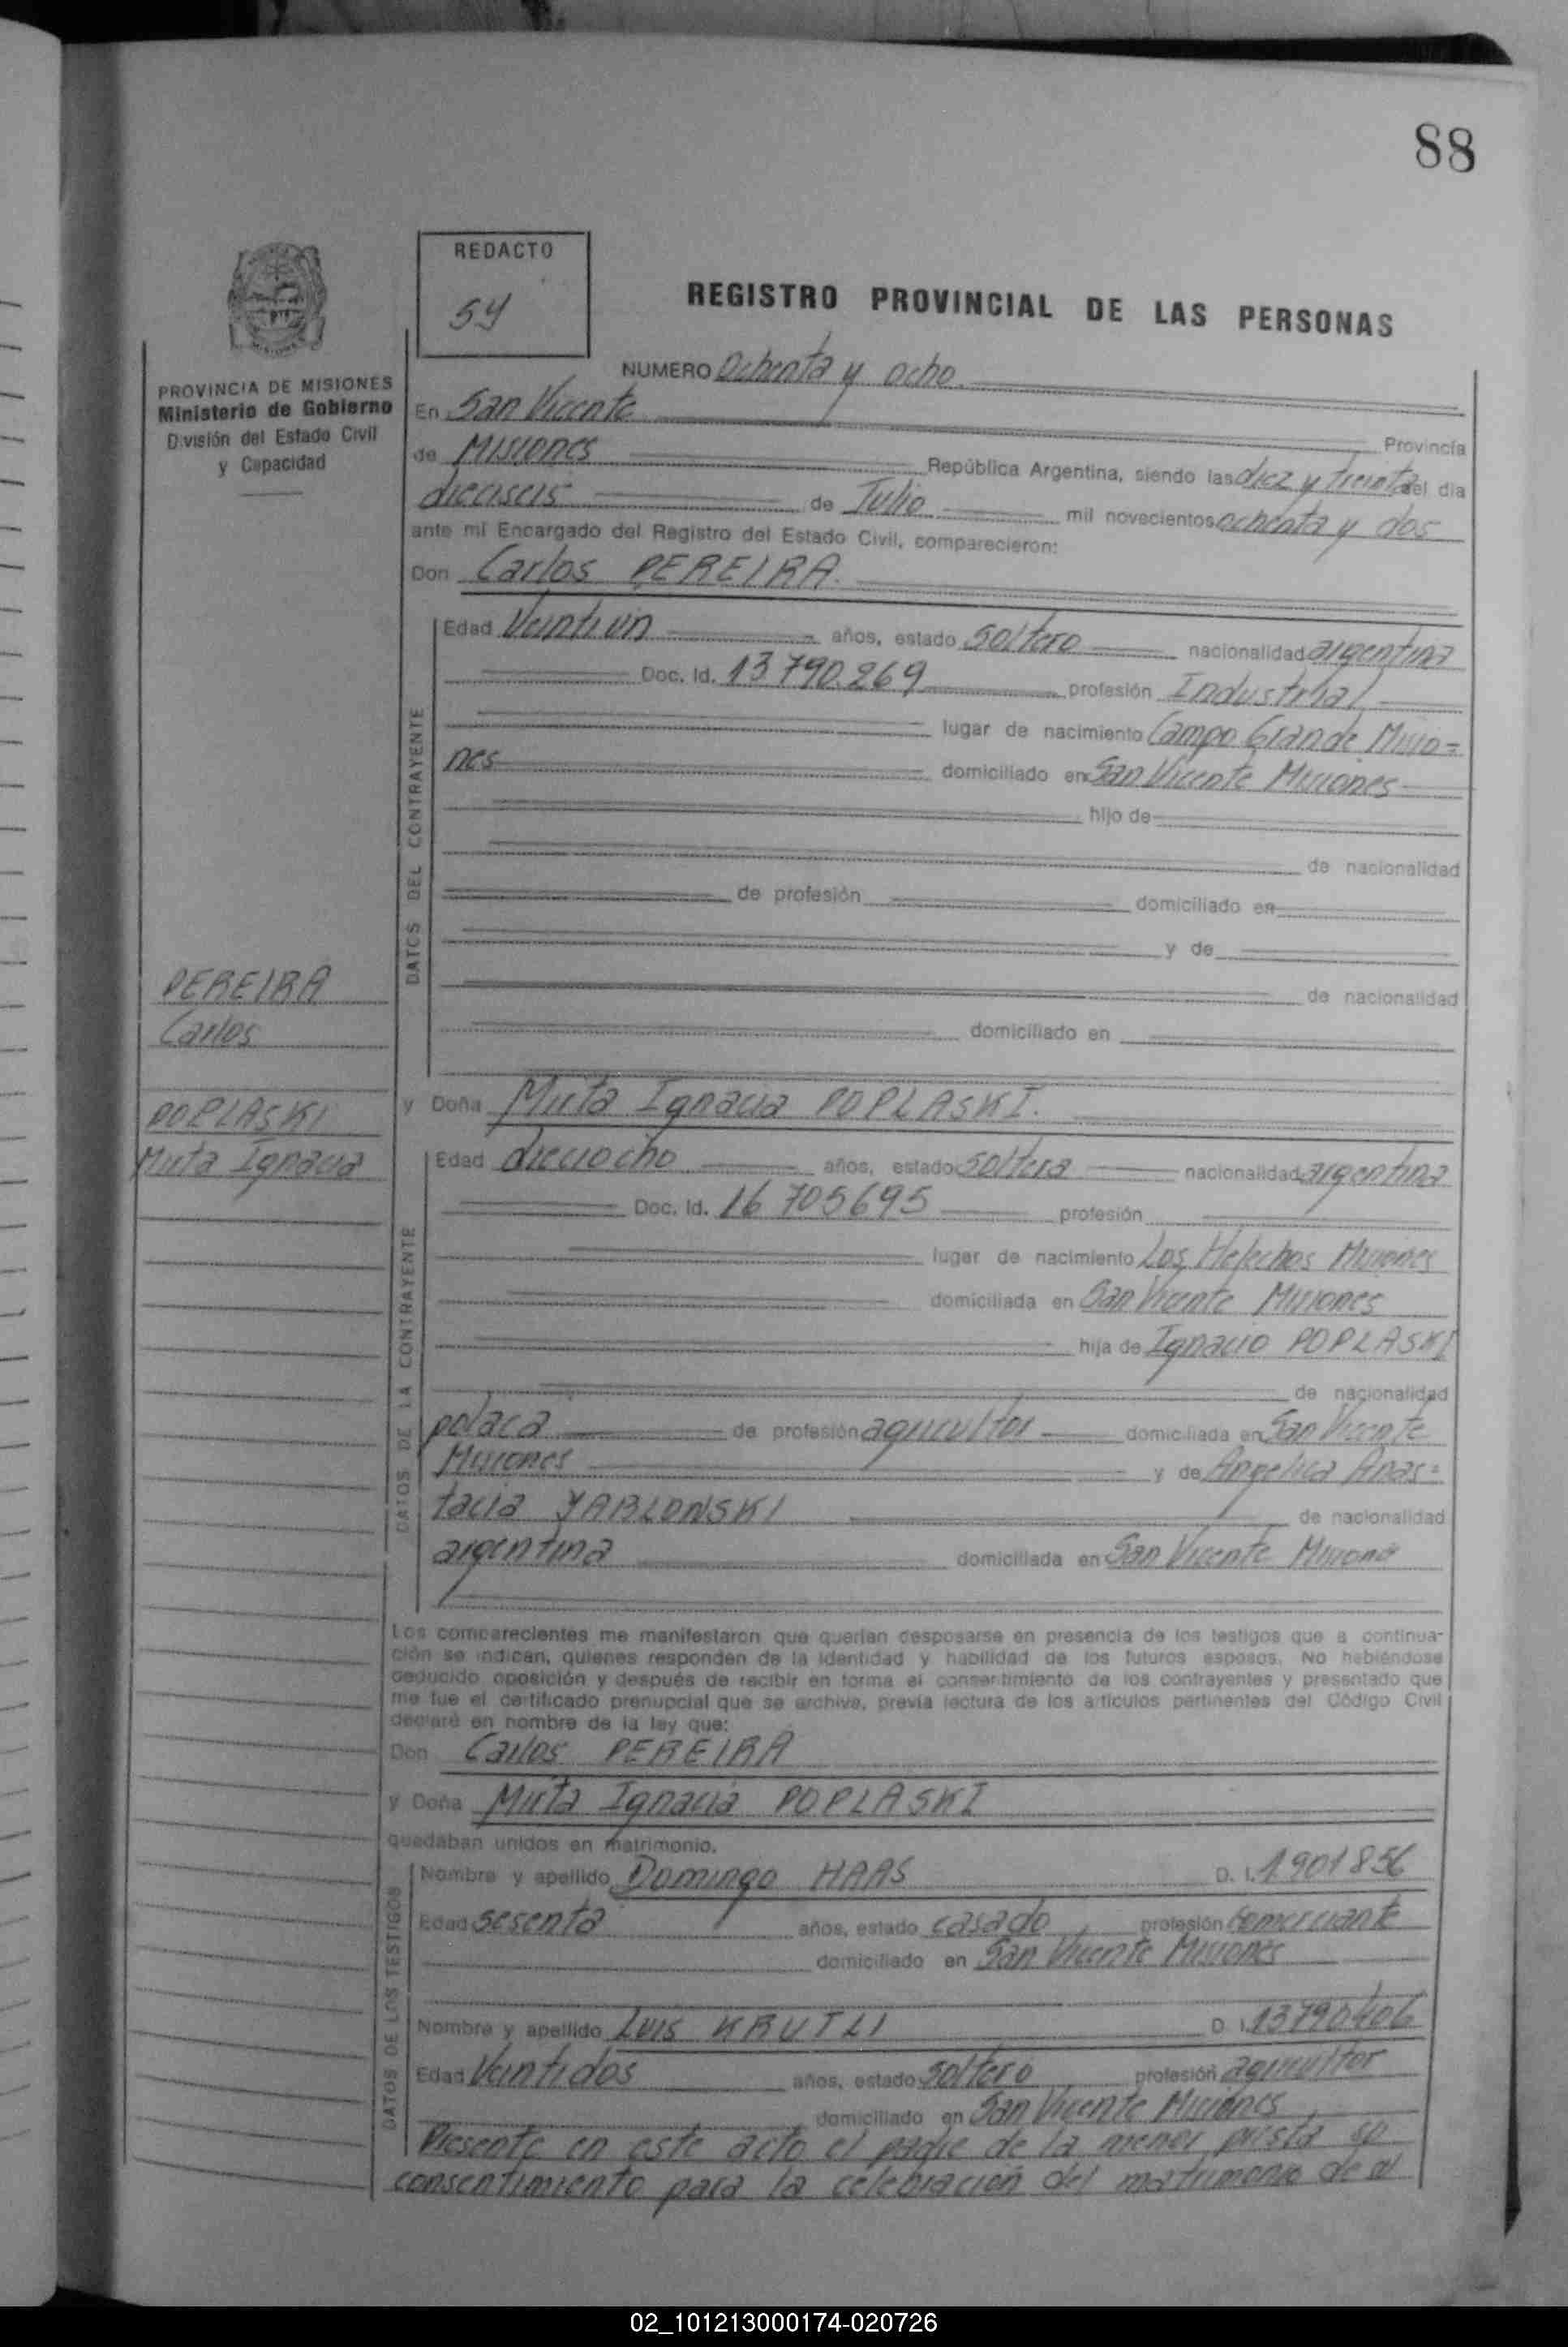 88
REDACTO
54
REGISTRO PROVINCIAL DE LAS PERSONAS
PROVINCIA DE MISIONES
Ministerio de Gobierno
División del Estado Civil
y Capacidad
NUMERO Ochenta y ocho.
En San Vicente Provincia
de Misiones República Argentina, siendo las diez y treinta del día
dieciseis de Julio mil novecientos ochenta y dos
ante mi Encargado del Registro del Estado Civil, comparecieron:
Don Carlos PEREIRA.
DATOS DEL CONTRAYENTE
Edad Veintiun años, estado soltero nacionalidad argentina
Doc. Id. 13.790.269 profesión Industrial
lugar de nacimiento Campo Grande Misio=
nes domiciliado en San Vicente Misiones
hijo de
de nacionalidad
de profesión domiciliado en
y de
de nacionalidad
domiciliado en
PEREIRA
Carlos
POPLASKI
Mirta Ignacia
y Doña Mirta Ignacia POPLASKI.
DATOS DE LA CONTRAYENTE
Edad dieciocho años, estado soltera nacionalidad argentina
Doc. Id. 16 705695 profesión
lugar de nacimiento Los Helechos Misiones
domiciliada en San Vicente Misiones
hija de Ignacio POPLASKI
de nacionalidad
polaca de profesión agricultor domiciliada en San Vicente
Misiones y de Angelica Anas=
tacia YABLONSKI de nacionalidad
argentina domiciliada en San Vicente Misiones
Los comparecientes me manifestaron que querían desposarse en presencia de los testigos que a continua-
ción se indican, quienes responden de la identidad y habilidad de los futuros esposos. No habiéndose
deducido oposición y después de recibir en forma el consentimiento de los contrayentes y presentado que
me fue el certificado prenupcial que se archiva, previa lectura de los artículos pertinentes del Código Civil
declaré en nombre de la ley que:
Don Carlos PEREIRA
y Doña Mirta Ignacia POPLASKI
quedaban unidos en matrimonio.
DATOS DE LOS TESTIGOS
Nombre y apellido Domingo HAAS D. I. 1901856
Edad sesenta años, estado casado profesión comerciante
domiciliado en San Vicente Misiones
Nombre y apellido Luis KRUTLI D. I. 13790406
Edad Veintidos años, estado soltero profesión agricultor
domiciliado en San Vicente Misiones
Presente en este acto el padre de la menor presta su
consentimiento para la celebración del matrimonio de
02_101213000174-020726